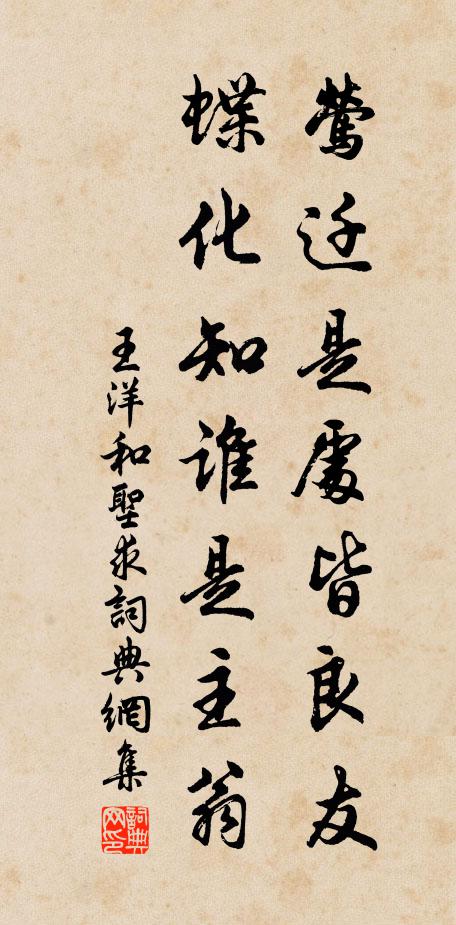 莺迁是處皆良友
蝶化知谁是主翁
王洋和聖求詞典網集
詞典网印